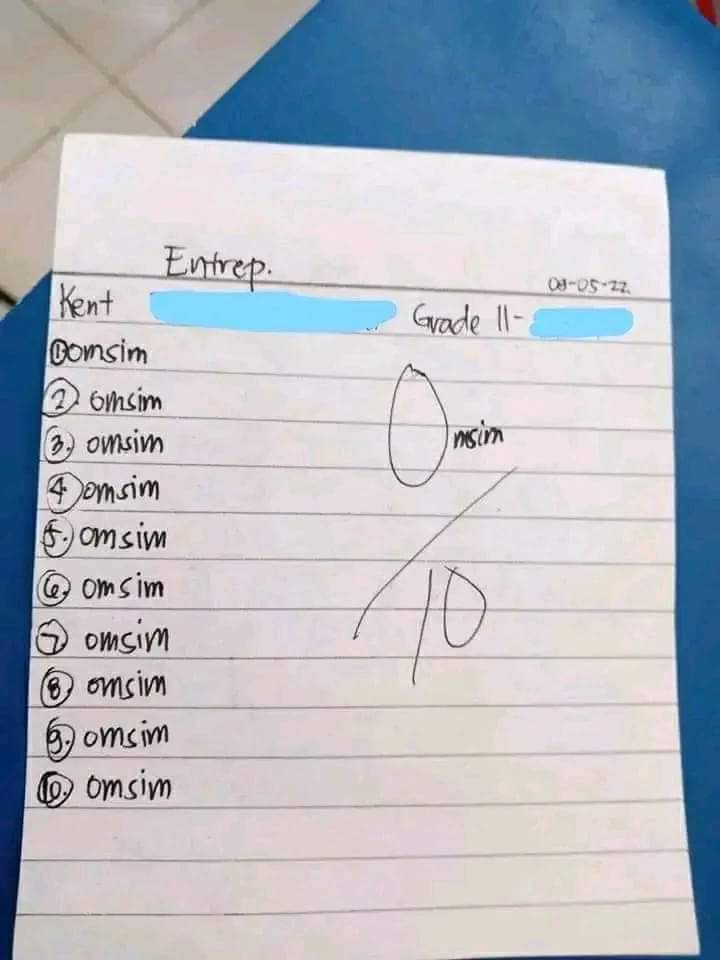 Entrep.
09-05-22
Kent Grade 11-
1. omsim
2. omsim
3. omsim
4. omsim
5. omsim
6. omsim
7. omsim
8. omsim
9. omsim
10. omsim
0msim
/
10